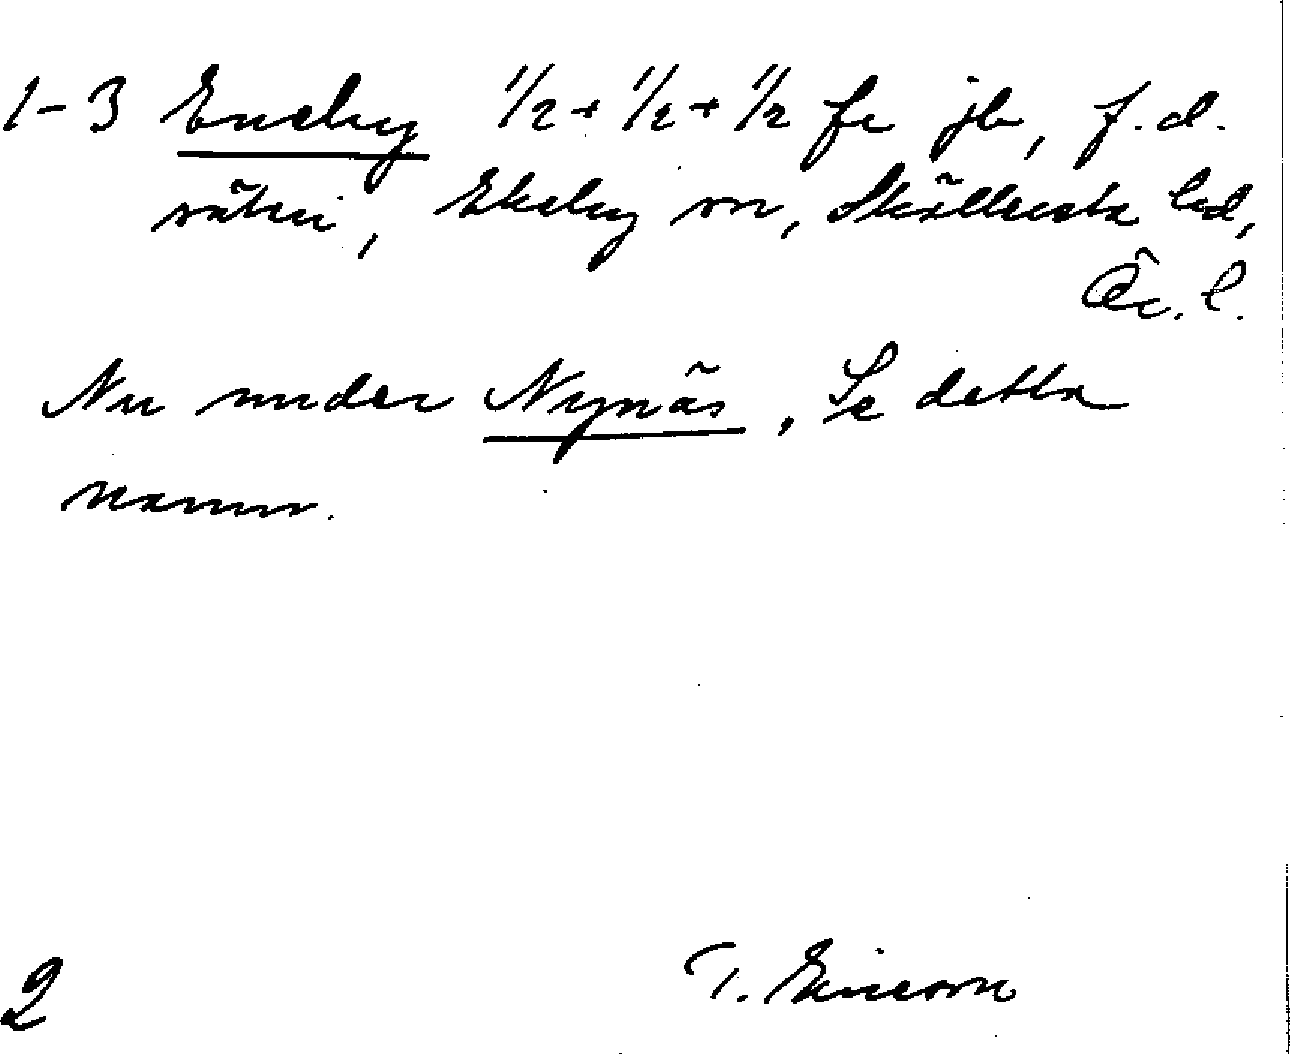 1-3 Eneby 1/2 + 1/2 + 1/2 fr jb, f.d.
säteri, Ekeby sn, Skyllersta hd,
Ör. l.
Nu under Nynäs, Se detta
namn.
2 T. Ericsson